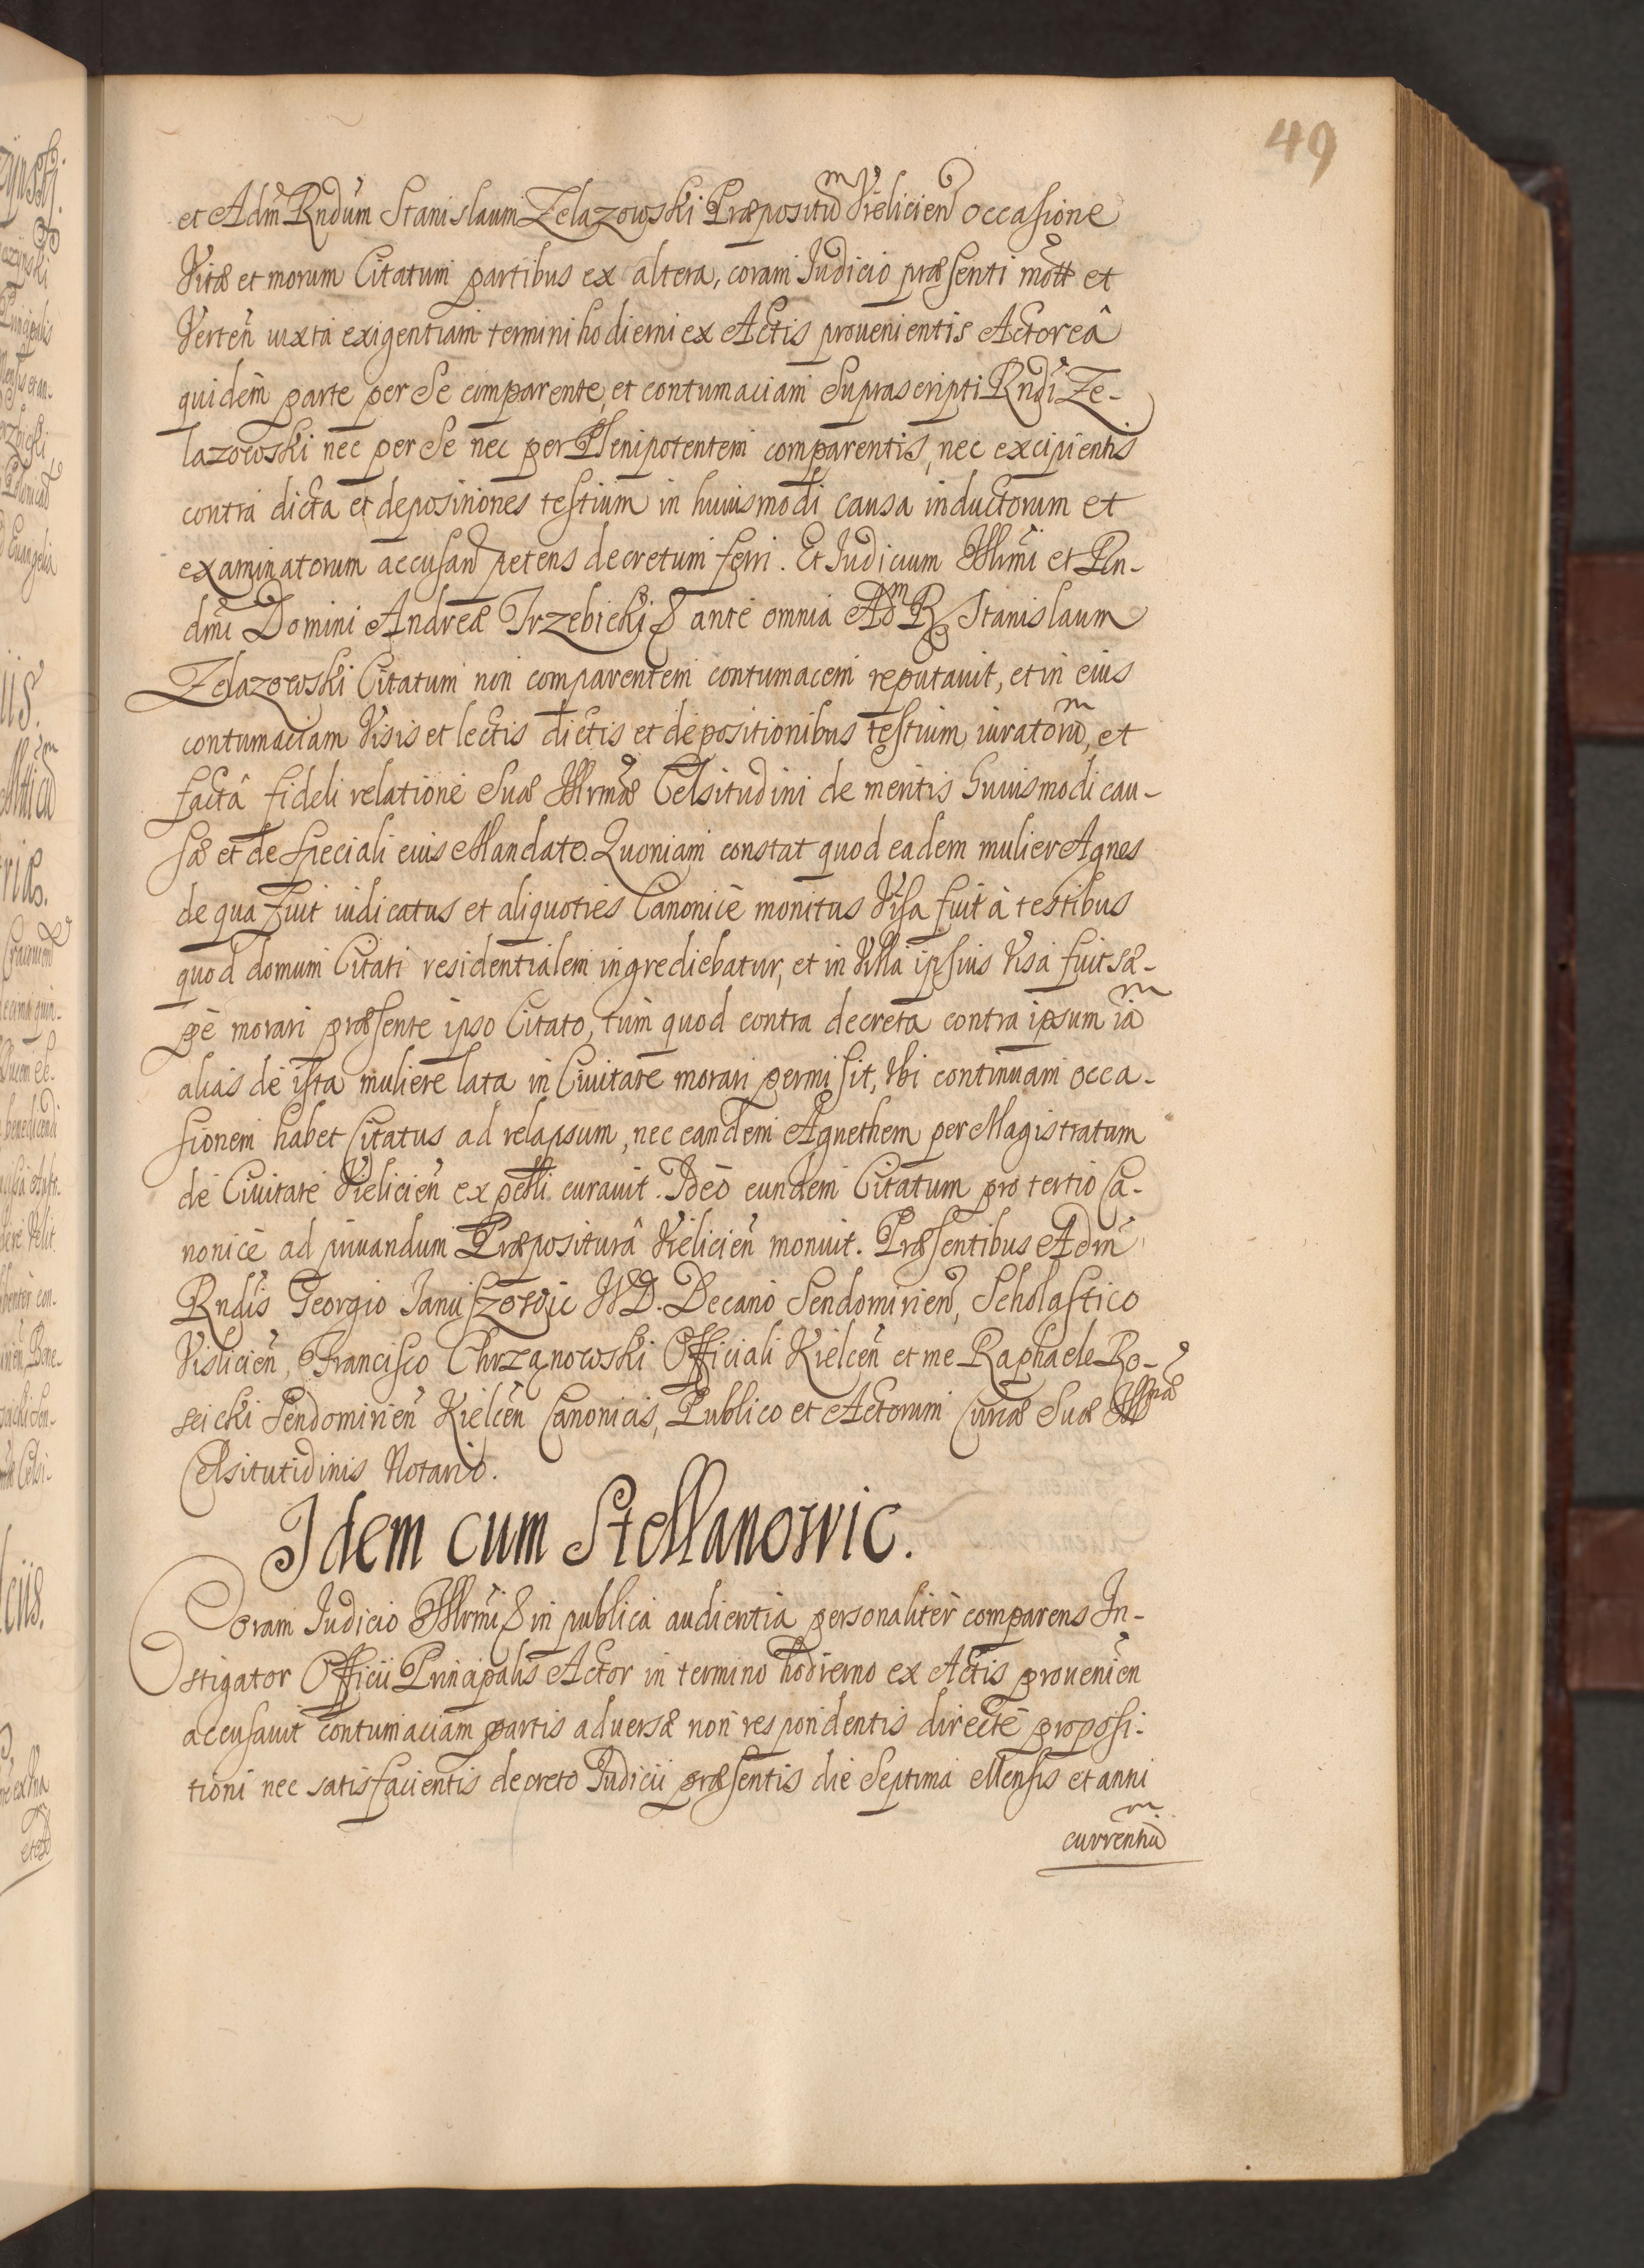 49
et Adm̃ Rndum Stanislaum Zelazowski Præpositũm Vielicień occasione
Vitæ et morum Citatum partibus ex altera, coram Iudicio præsenti mott et
Verteñ iuxta exigentiam termini hodierni ex Actis prouenientis Actoreâ
quidem parte per Se comparente, et contumaciam Suprascripti Rndi Ze-
lazowski nec per Se nec per Plenipotentem comparentis, nec excipientis
contra dicta et depositiones testium in huiusmodi causa inductorum et
examinatorum accusand petens decretum ferri. Et Iudicium Illrmi et Rn-
dmi Domini Andreæ Trzebicki & ante omnia Adm R Stanislaum
Zelazowski Citatum non comparentem contumacem reputauit, et in eius
contumaciam Visis et lectis dictis et depositionibus testium iuratorũm, et
factâ fideli relatione Suæ Illrmæ Celsitudini de meritis huiusmodi cau-
sæ et de speciali eius Mandato. Quoniam constat quod eadem mulier Agnes
de qua fuit iudicatus et aliquoties Canonicè monitus Visa fuit à testibus
quod domum Citati residentialem ingrediebatur, et in Villa ipsius Visa fuit sæ-
pè morari præsente ipso Citato, tum quod contra decreta contra ipsum iam
alias de ista muliere lata in Ciuitate morari permisit, Vbi continuam occa-
sionem habet Citatus ad relapsum, nec eandem Agnethem per Magistratum
de Ciuitate Vielicień expelli curauit. Ideò eundem Citatum pro tertio Ca-
nonicè ad priuandum Præpositurâ Vielicień monuit. Præsentibus Adm
Rndis Georgio Ianiszowic IVD. Decano Sendomirień, Scholastico
Vislicień, Francisco Chrzanowski Officiali Kielceń et me Raphaele Ro-
seicki Sendomirień Kielceń Canonicis, Publico et Actorum Curiæ Suæ Illrmæ
Celsitutidinis Notario.
Idem cum Stellanowic.
Coram Iudicio Illrmi & in publica audientia personaliter comparens In-
stigator Officii Principalis Actor in termino hodierno ex Actis prouenień
accusauit contumaciam partis aduersæ non respondentis directè proposi-
tioni nec satisfacientis decreto Iudicii præsentis die Septima Mensis et anni
currentium